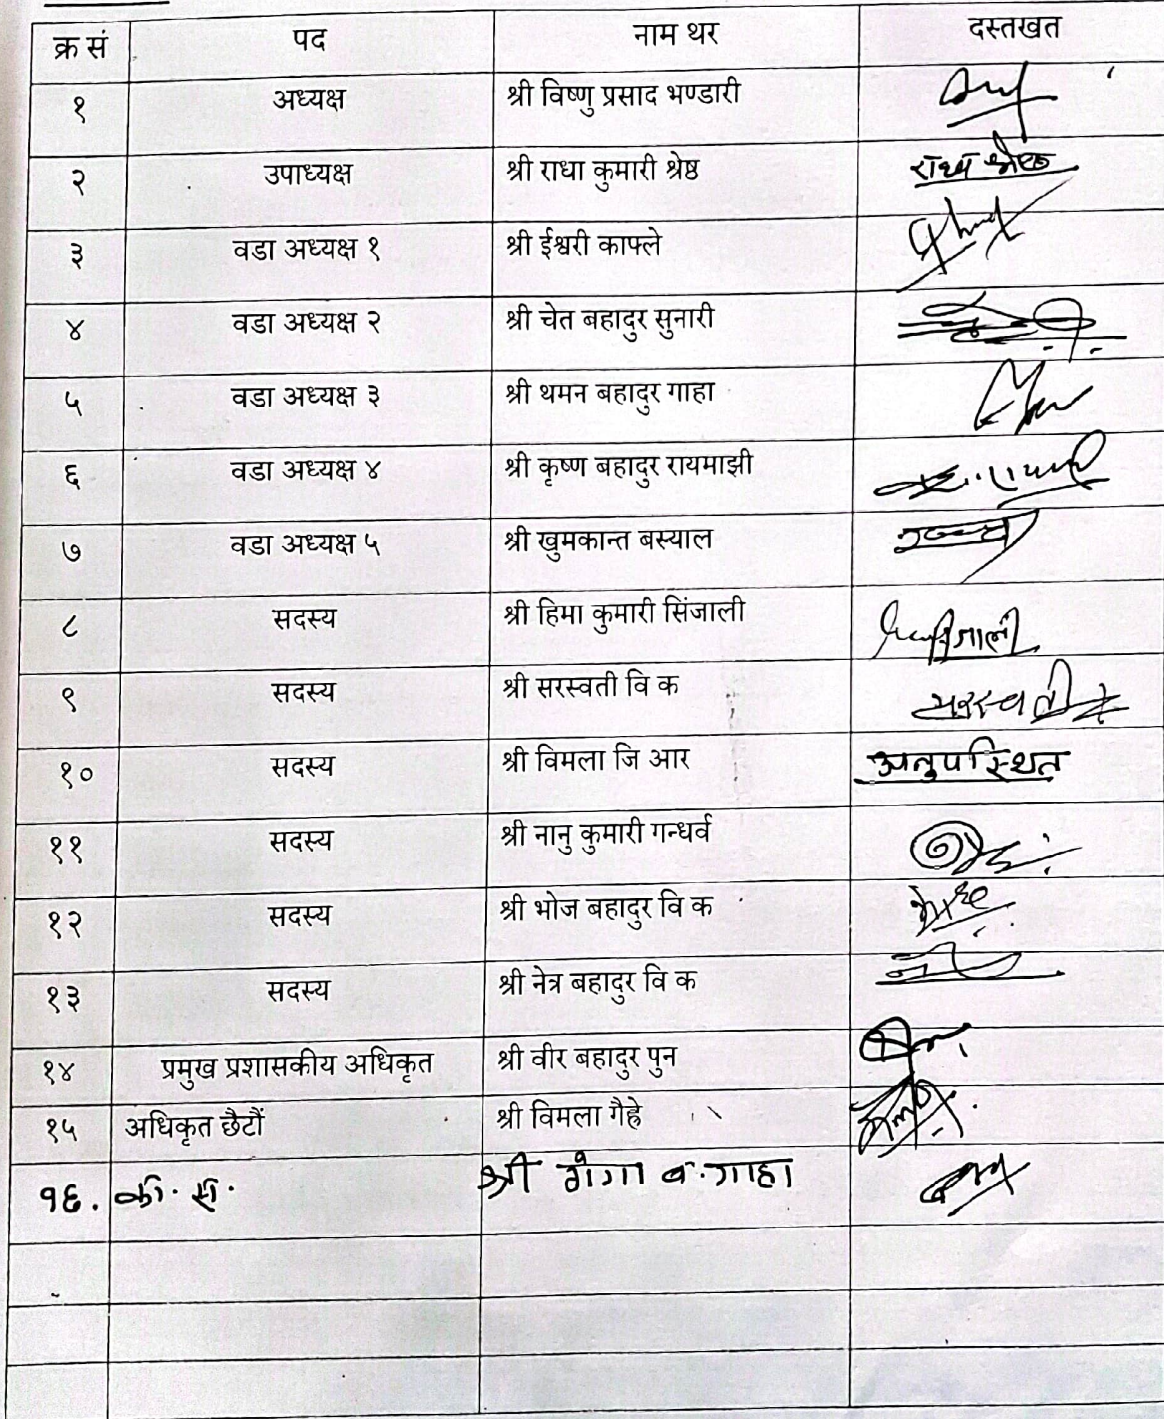 क्र सं पद नाम थर दस्तखत
१ अध्यक्ष श्री विष्णु प्रसाद भण्डारी
२ उपाध्यक्ष श्री राधा कुमारी श्रेष्ठ राधा श्रेष्ठ
३ वडा अध्यक्ष १ श्री ईश्वरी काफ्ले
४ वडा अध्यक्ष २ श्री चेत बहादुर सुनारी
५ वडा अध्यक्ष ३ श्री थमन बहादुर गाहा
६ वडा अध्यक्ष ४ श्री कृष्ण बहादुर रायमाझी
७ वडा अध्यक्ष ५ श्री खुमकान्त बस्याल
८ सदस्य श्री हिमा कुमारी सिंजाली
९ सदस्य श्री सरस्वती वि क सरस्वती
१० सदस्य श्री विमला जि आर अनुपस्थित
११ सदस्य श्री नानु कुमारी गन्धर्व
१२ सदस्य श्री भोज बहादुर वि क
१३ सदस्य श्री नेत्र बहादुर वि क
१४ प्रमुख प्रशासकीय अधिकृत श्री वीर बहादुर पुन
१५ अधिकृत छैटौं श्री विमला गैह्रे
१६. क. स. श्री गंगा ब. गाहा